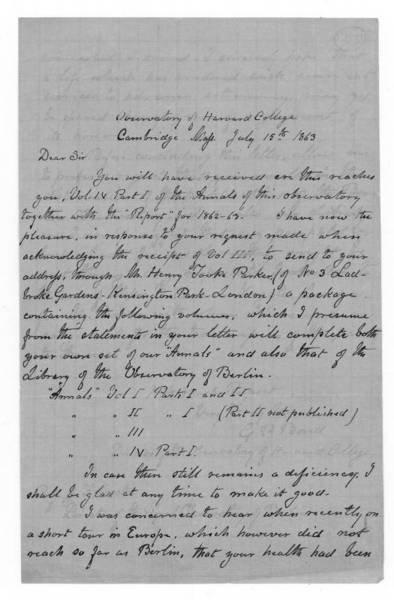 Observatory of Harvard College
Cambridge Mass. July 15th 1863
Dear Sir
You will have received ere this reaches
you, Vol IV Part I, of the Annals of this observatory
together with the "Report" for 1862-63. I have now the
pleasure, in response to your request made when
acknowledging the receipt of Vol III, to send to your
address, through Mr. Henry Tooke Parker (of No 3 Lad-
broke Gardens - Kensington Park - London) a package
containing the following volumes, which I presume
from the statements in your letter will complete both
your own set of our "Annals" and also that of the
Library of the Observatory of Berlin.
"Annals" Vol I Parts I and II
" " II " I (Part II not published)
" " III
" " IV Part I.
In case there still remains a deficiency, I
shall be glad at any time to make it good.
I was concerned to hear, when recently on
a short tour in Europe, which however did not
reach so far as Berlin, that your health had been